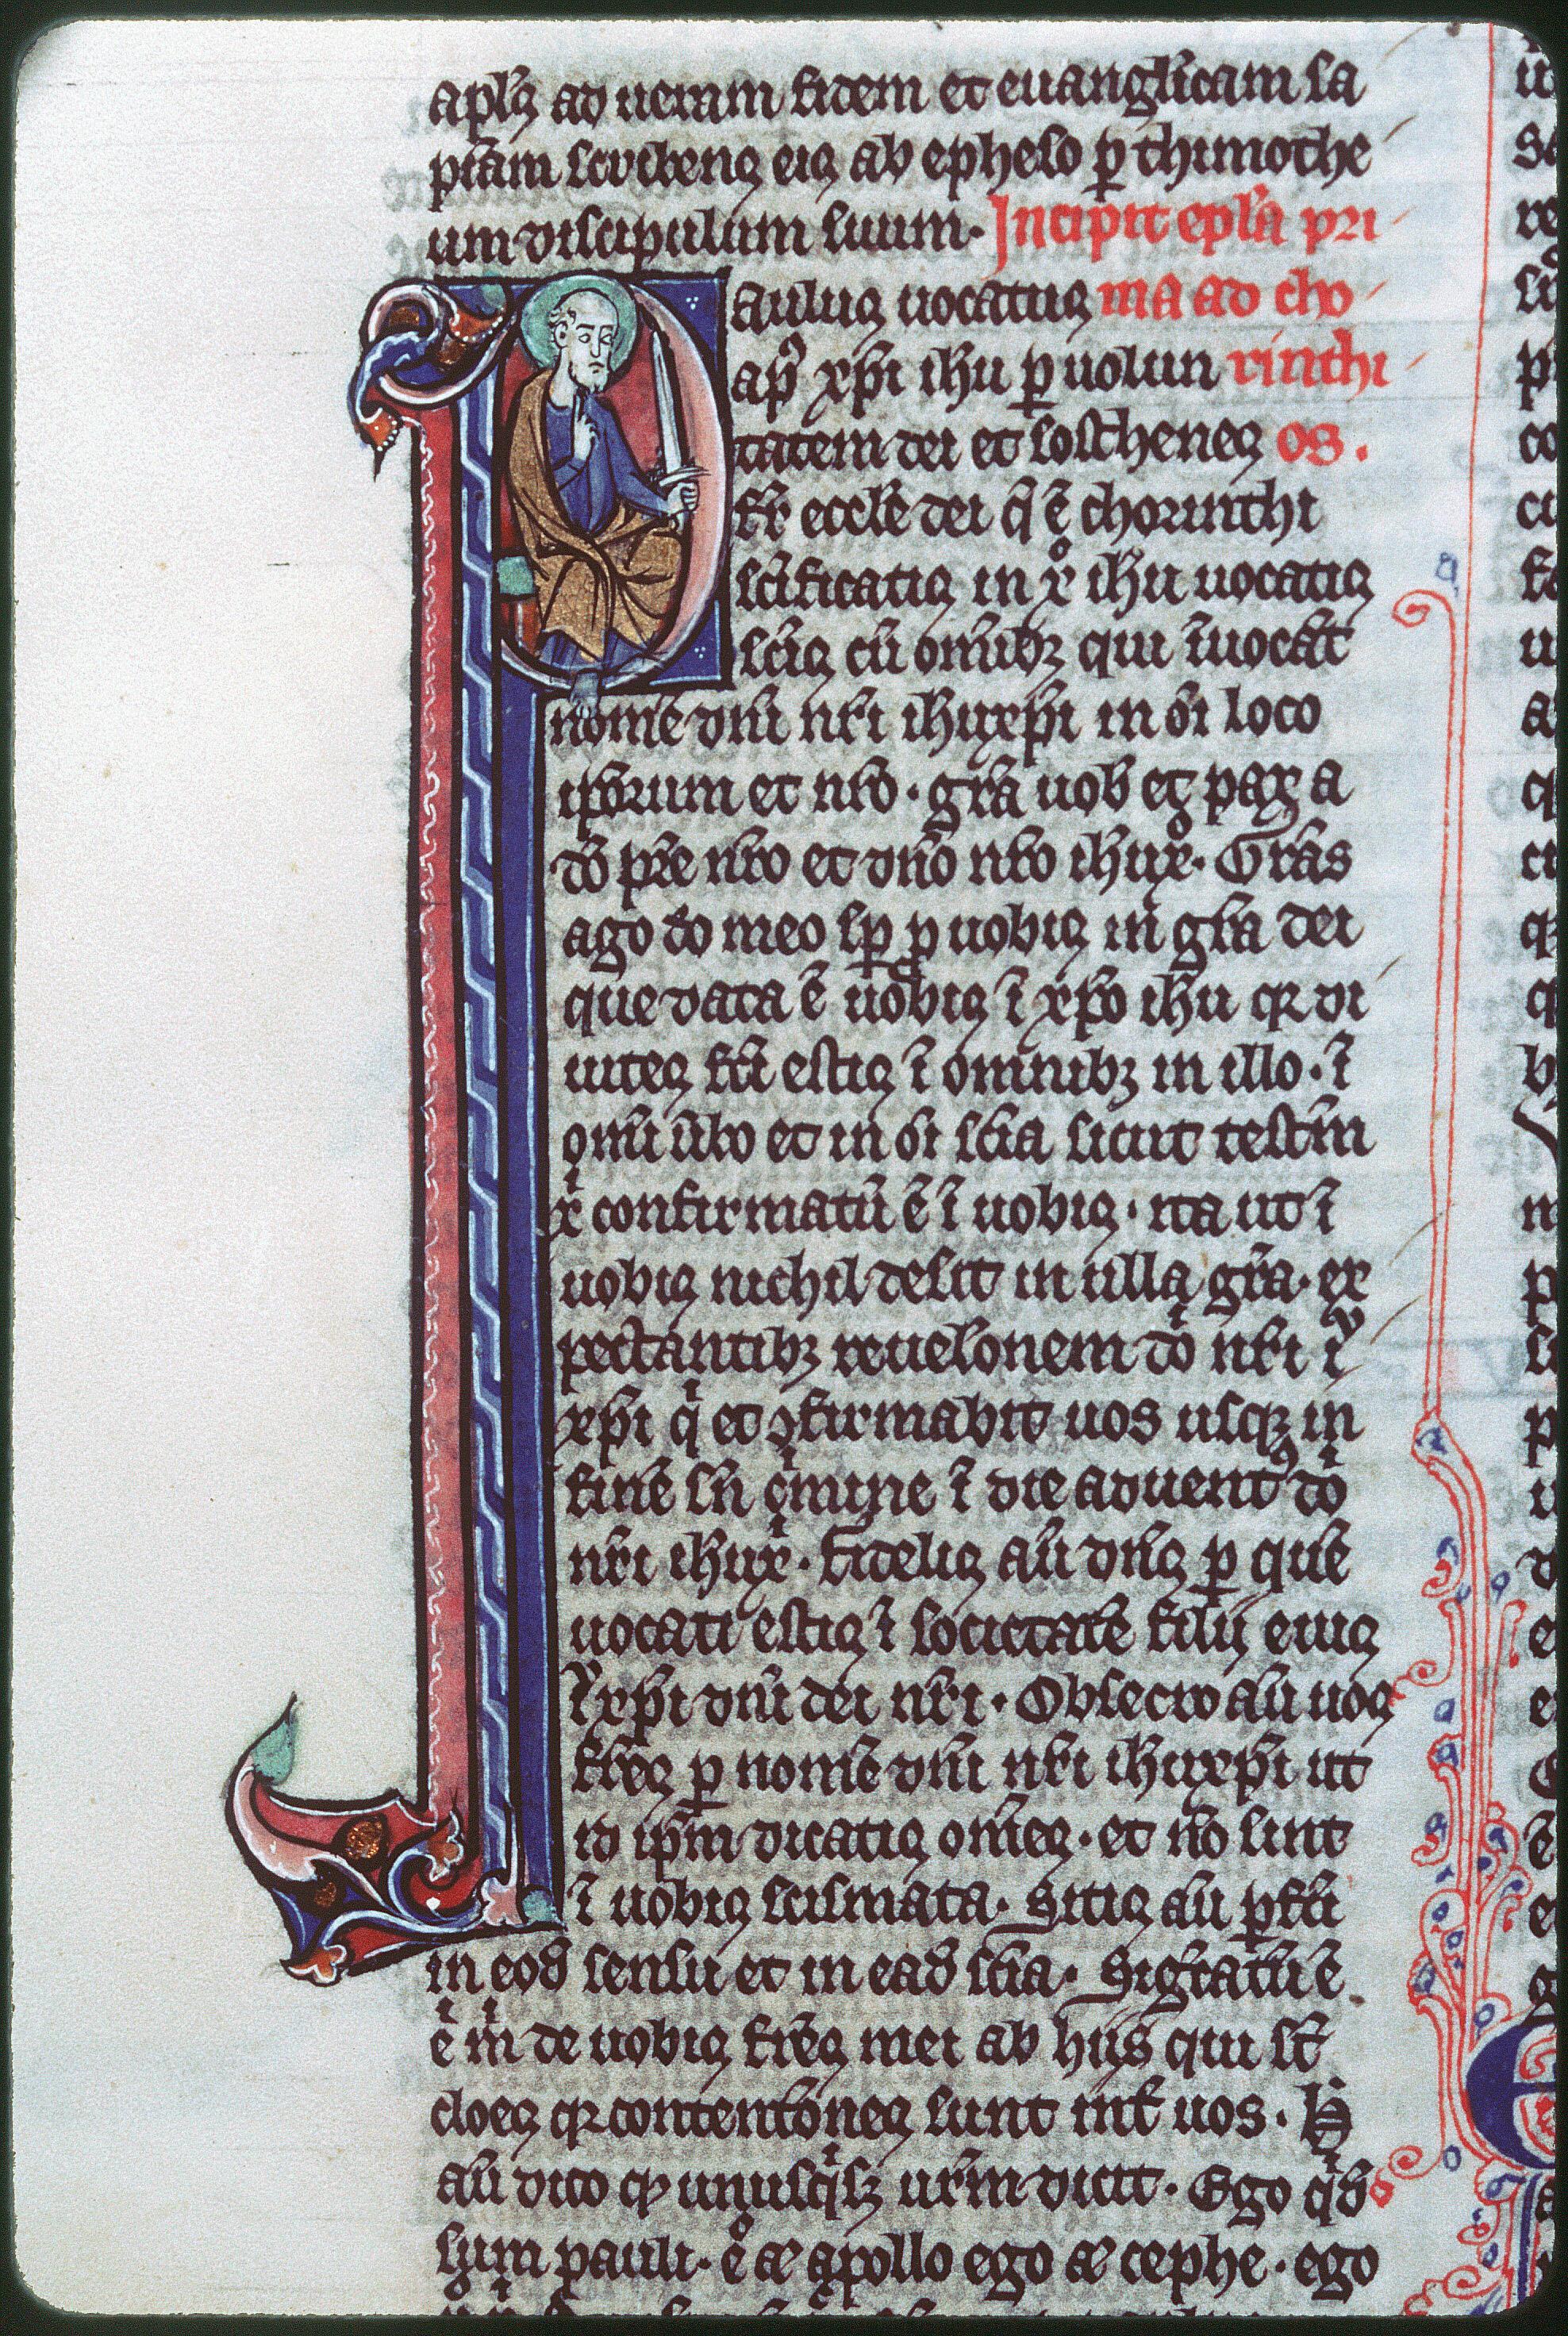 apl̃s ad ueram fidem et euangl̃icam sa
pĩam scribens eis ab epheso ꝑ thimothe
um discipulum suum. Incipit epl̃a pri
aulus uocatus ma ad cho
ap̃ xp̃i ihu ꝑ uolun rinthi
tatem dei et sosthenes os.
fr̃ eccl̃e dei q̃ ẽ chorinthi
sc̃ificatis in xº ihu uocatis
sc̃is cũ om̃ibꝫ qui ĩuocãt
nomẽ dñi nr̃i ihuxp̃i in õi loco
ip̃orum et nr̃o. gr̃a uob̃ et pax a
dõ pr̃e nr̃o et dño nr̃o ihuxº. Gr̃as
ago dõ meo sꝑ ꝓ uobis in gr̃a dei
que data ẽ uobis ĩ xp̃o ihu qꝛ di
uites fc̃i estis ĩ omnibꝫ in illo. ĩ
om̃i ũbo et in õi sc̃ia sicut testm̃
x̃ confirmatũ ẽ ĩ uobis. ita ut ĩ
uobis nichil desit in ulla gr̃a. ex
pectantibꝫ reuel̃onem dõ nr̃i ĩ
xp̃i q̃ et ꝯfirmabit uos usqꝫ in
finẽ sñ ꝯmine ĩ die aduentꝰ dõ
nr̃i ihux̃. fidelis aũ dñs ꝑ quẽ
uocati estis ĩ societatẽ filij eius
ĩxp̃i dñi dei nr̃i. Obsecro aũ uos
fr̃es ꝑ nomẽ dñi nr̃i ihuxp̃i ut
id ip̃m dicatis om̃es. et nõ sint
ĩ uobis scismata. Sitis aũ ꝑfc̃i
in eod̃ sensu et in ead̃ sc̃ia. Sigr̃atũ ẽ
ẽ m̃ de uobis fr̃es mei ab hijs qui st̃
cloes qꝛ contentõnes sunt int̃ uos. h̃
aũ dico qꝫ unusq̃sqꝫ ur̃m dicit. Ego qd̃
sum pauli. eº æ apollo ego æ cephe. ego